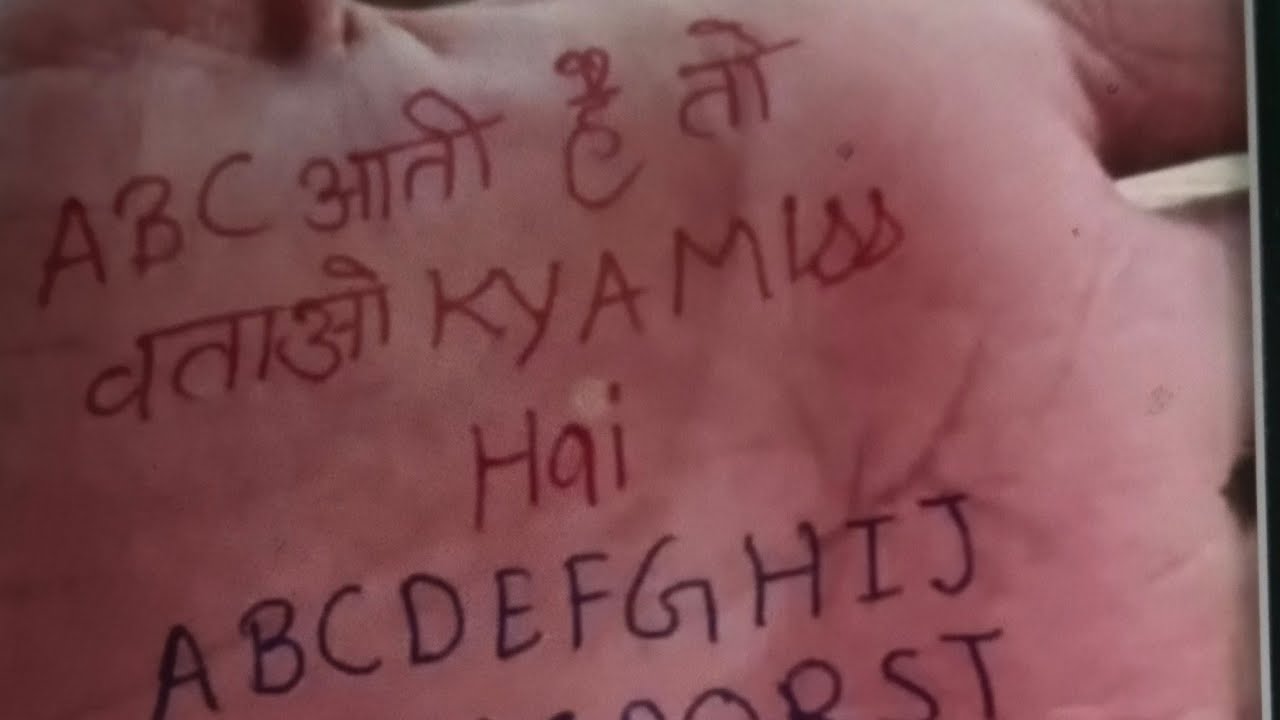 ABC आती है तो
वताओ KYA MISS
Hai
ABCDEFGHIJ
QRST